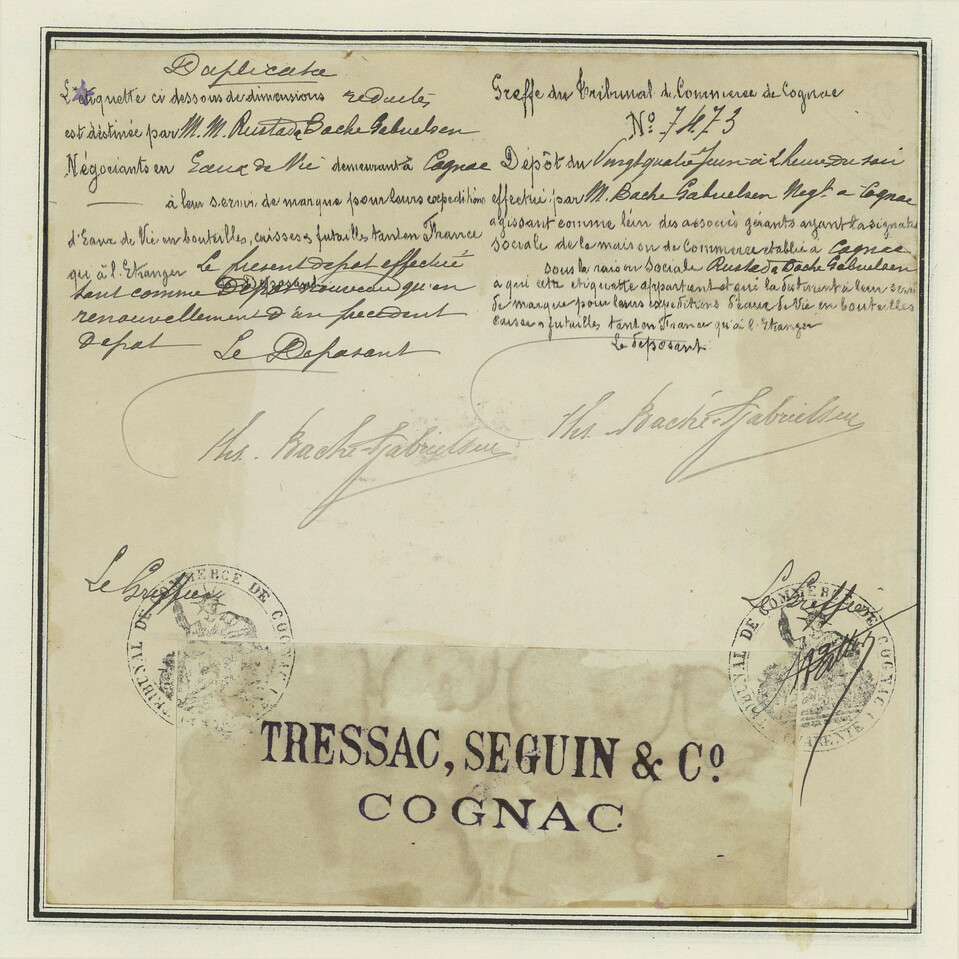 Duplicata
L'étiquette ci dessous de dimensions reduites
est destinée par M.M. Rustad & Bache Gabrielsen
Négociants en Eaux de Vie demeurant à Cognac
à leur servir de marque pour leurs expéditions
d'Eaux de Vie en bouteilles, caisses & futailles tant en France
qu'à l'Etranger Le présent depot effectué
tant comme Depot nouveau qu'en
renouvellement d'un précédent
depot Le Deposant
Ths. Bache-Gabrielsen
Le Greffier
Greffe du Tribunal de Commerce de Cognac
No. 7473
Dépôt du Vingt quatre Juin à 2 heure du soir
effectué par M. Bache Gabrielsen Negt. a Cognac
agissant comme l'un des associés gérants ayant la signature
sociale de la maison de Commerce établie à Cognac
sous la raison sociale Rustad & Bache Gabrielsen
à qui cette étiquette appartient et qui la destinent à leur servir
de marque pour leurs expéditions d'eaux de Vie en bouteilles
caisses & futailles tant en France qu'à l'Etranger
Le deposant
Ths. Baché-Gabrielsen
Le Greffier
TRIBUNAL DE COMMERCE DE COGNAC
TRIBUNAL DE COMMERCE COGNAC CHARENTE
TRESSAC, SEGUIN & Co.
COGNAC